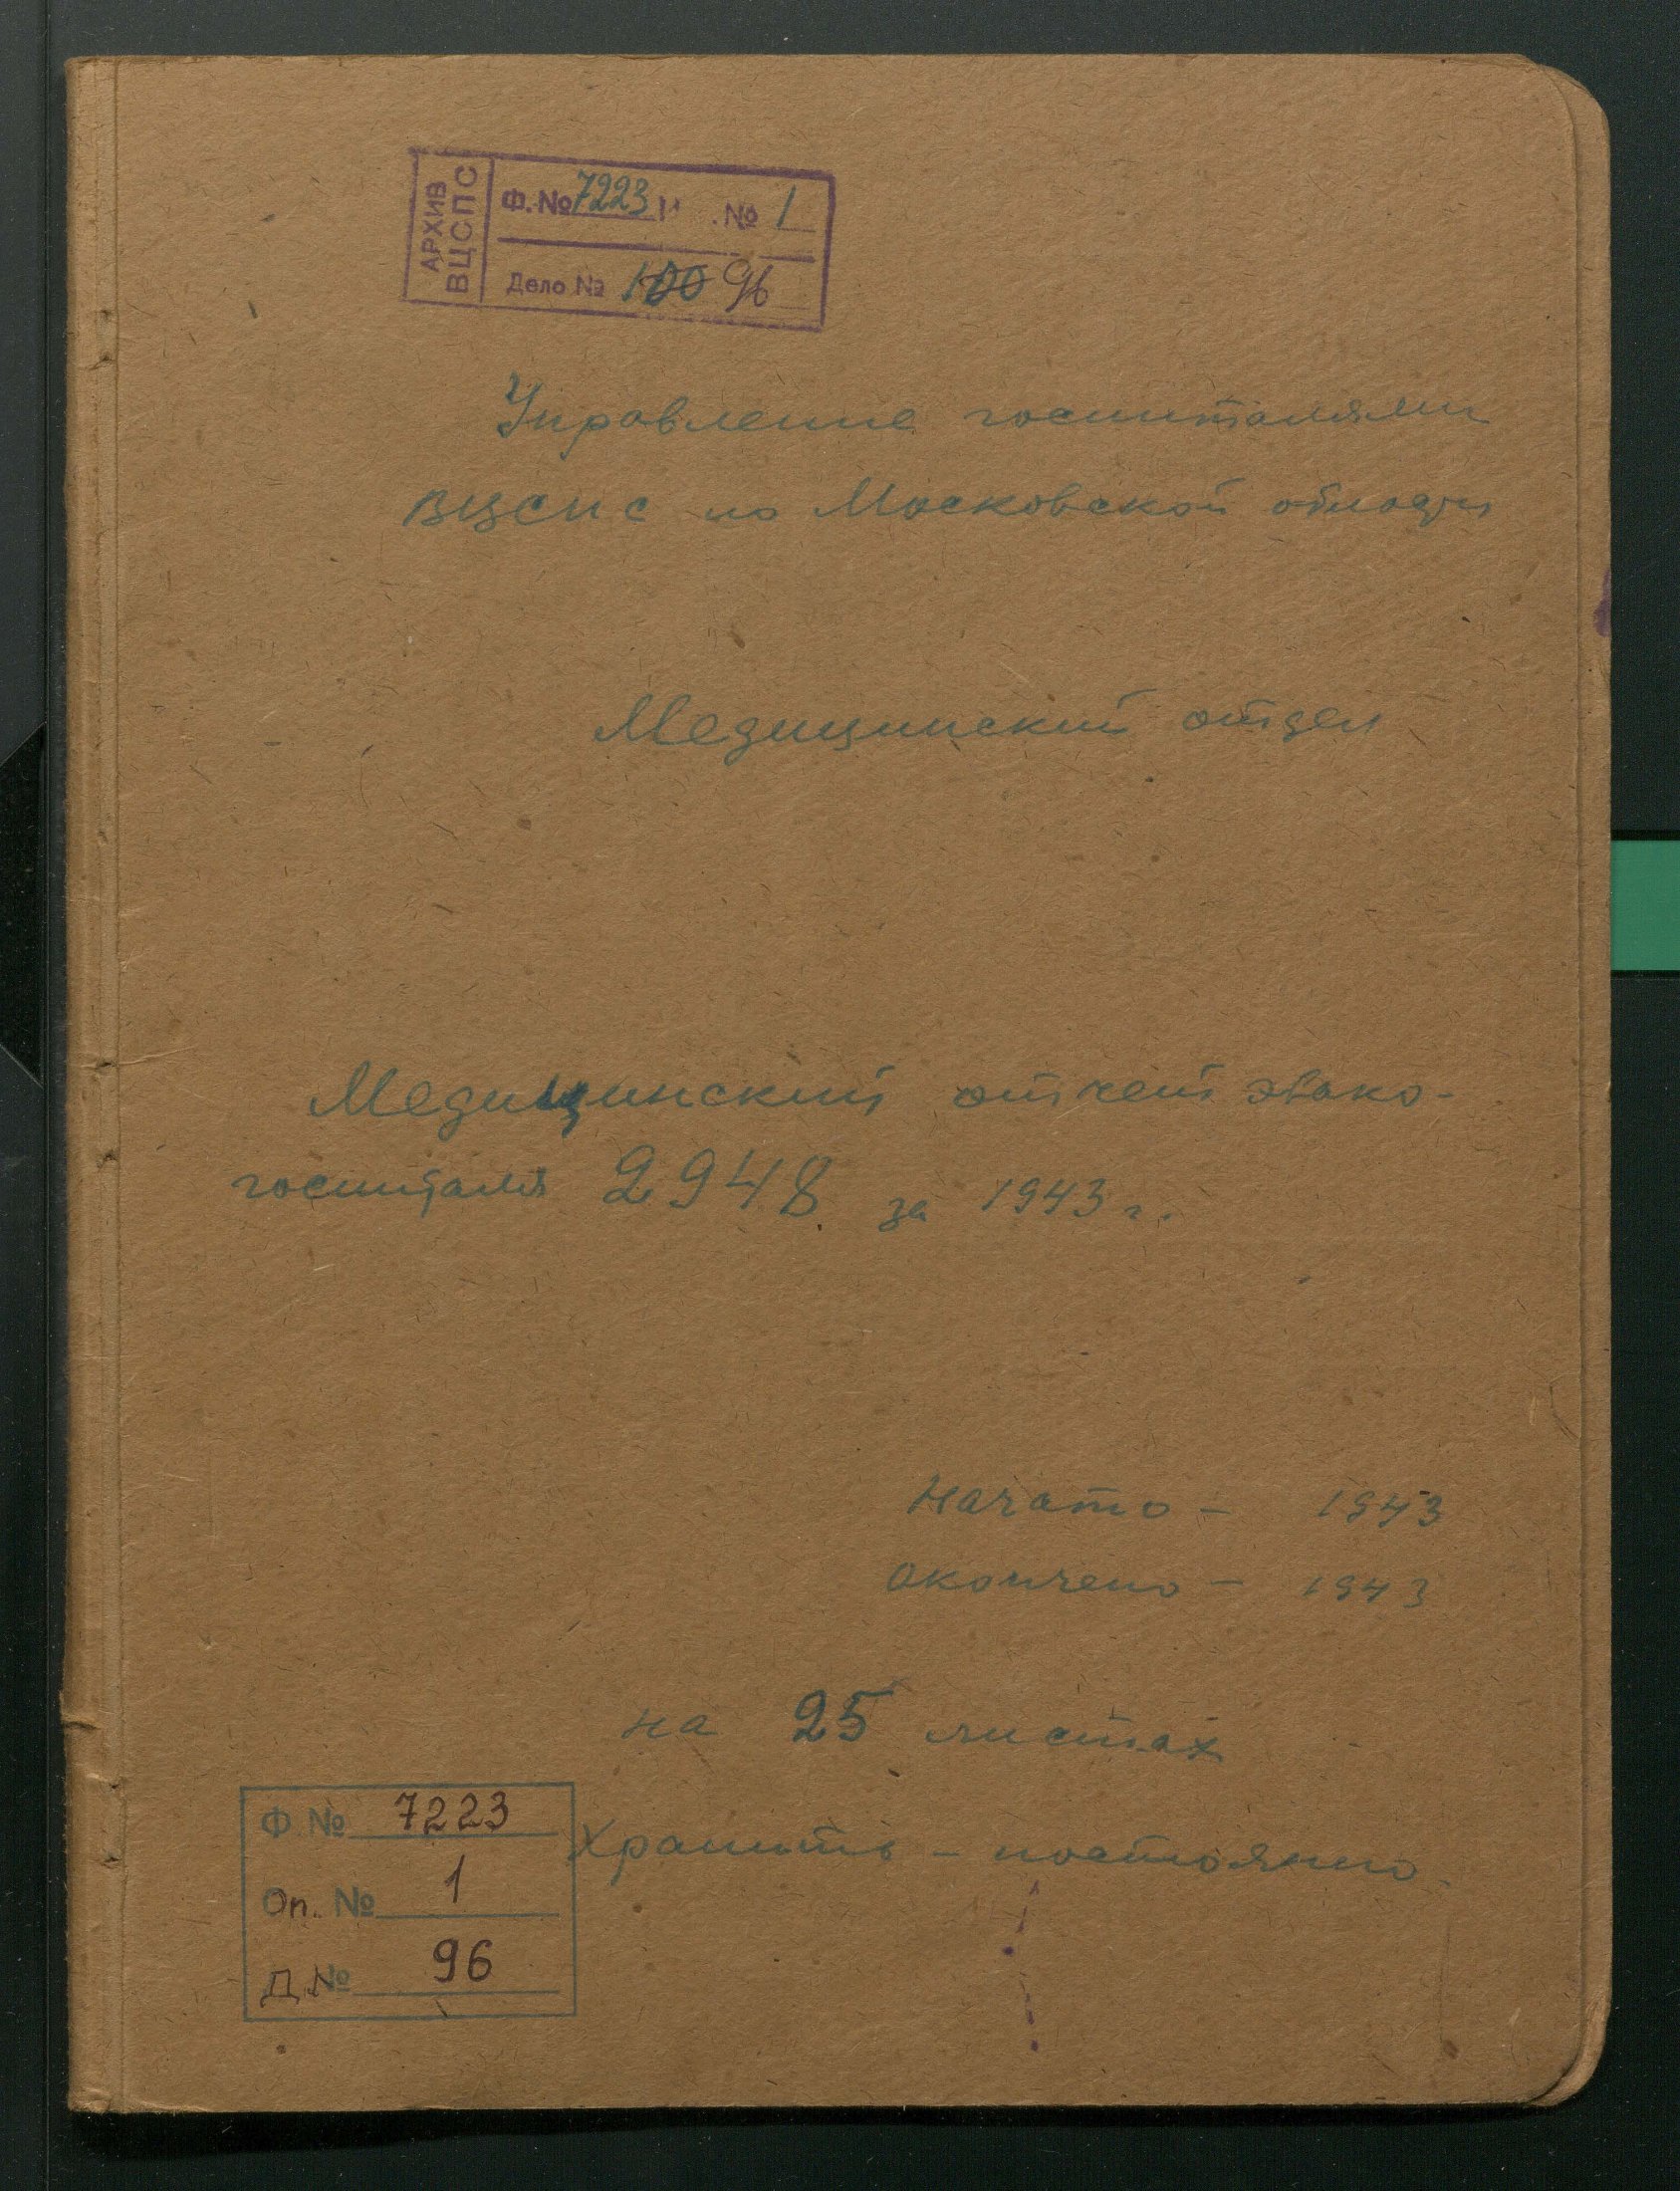 АРХИВ
ВЦСПС
Ф. № 7223 № 1
Дело № 100 96
Управление госпиталями
ВЦСПС по Московской области
Медицинский отдел
Медицинский отчет эвако-
госпиталя 2948 за 1943 г.
Начато - 1943
Окончено - 1943
на 25 листах
Хранить - постоянно.
Ф № 7223
Оп. № 1
Д. № 96